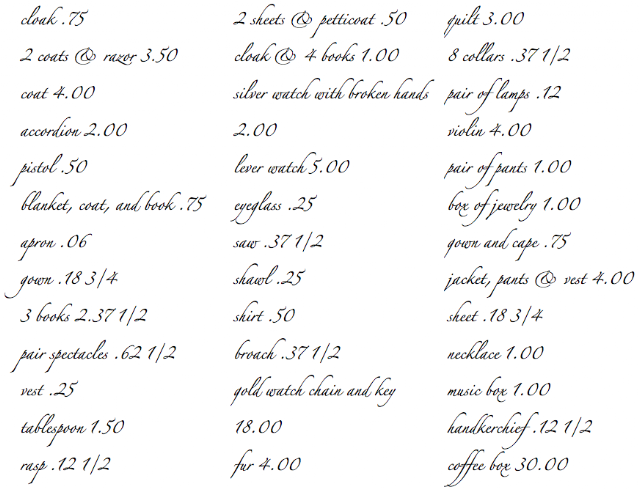 cloak .75
2 coats & razor 3.50
coat 4.00
accordion 2.00
pistol .50
blanket, coat, and book .75
apron .06
gown .18 3/4
3 books 2.37 1/2
pair spectacles .62 1/2
vest .25
tablespoon 1.50
rasp .12 1/2
2 sheets & petticoat .50
cloak & 4 books 1.00
silver watch with broken hands
2.00
lever watch 5.00
eyeglass .25
saw .37 1/2
shawl .25
shirt .50
broach .37 1/2
gold watch chain and key
18.00
fur 4.00
quilt 3.00
8 collars .37 1/2
pair of lamps .12
violin 4.00
pair of pants 1.00
box of jewelry 1.00
gown and cape .75
jacket, pants & vest 4.00
sheet .18 3/4
necklace 1.00
music box 1.00
handkerchief .12 1/2
coffee box 30.00